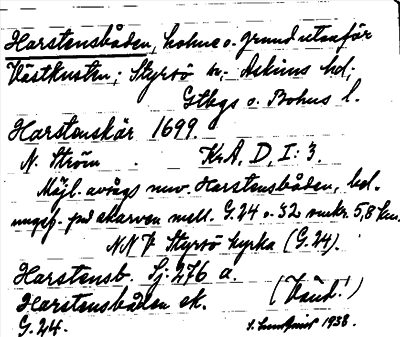 Harstensbåden, holme o. grund utanför
Västkusten; Styrsö sn; Askims hd;
Gtbgs o. Bohus l.
Harstenskär 1699.
N. Ström KrA, D, I: 3.
Möjl. avsågs nuv. Harstensbåden, bel.
ungef. på skarven mell. G.24 o. 32 omkr. 5,8 km.
NNV Styrsö kyrka (G.24).
Harstensb. Sj: 276 a.
Harstensbåden ek. (Vänd!)
G.24. 1938.